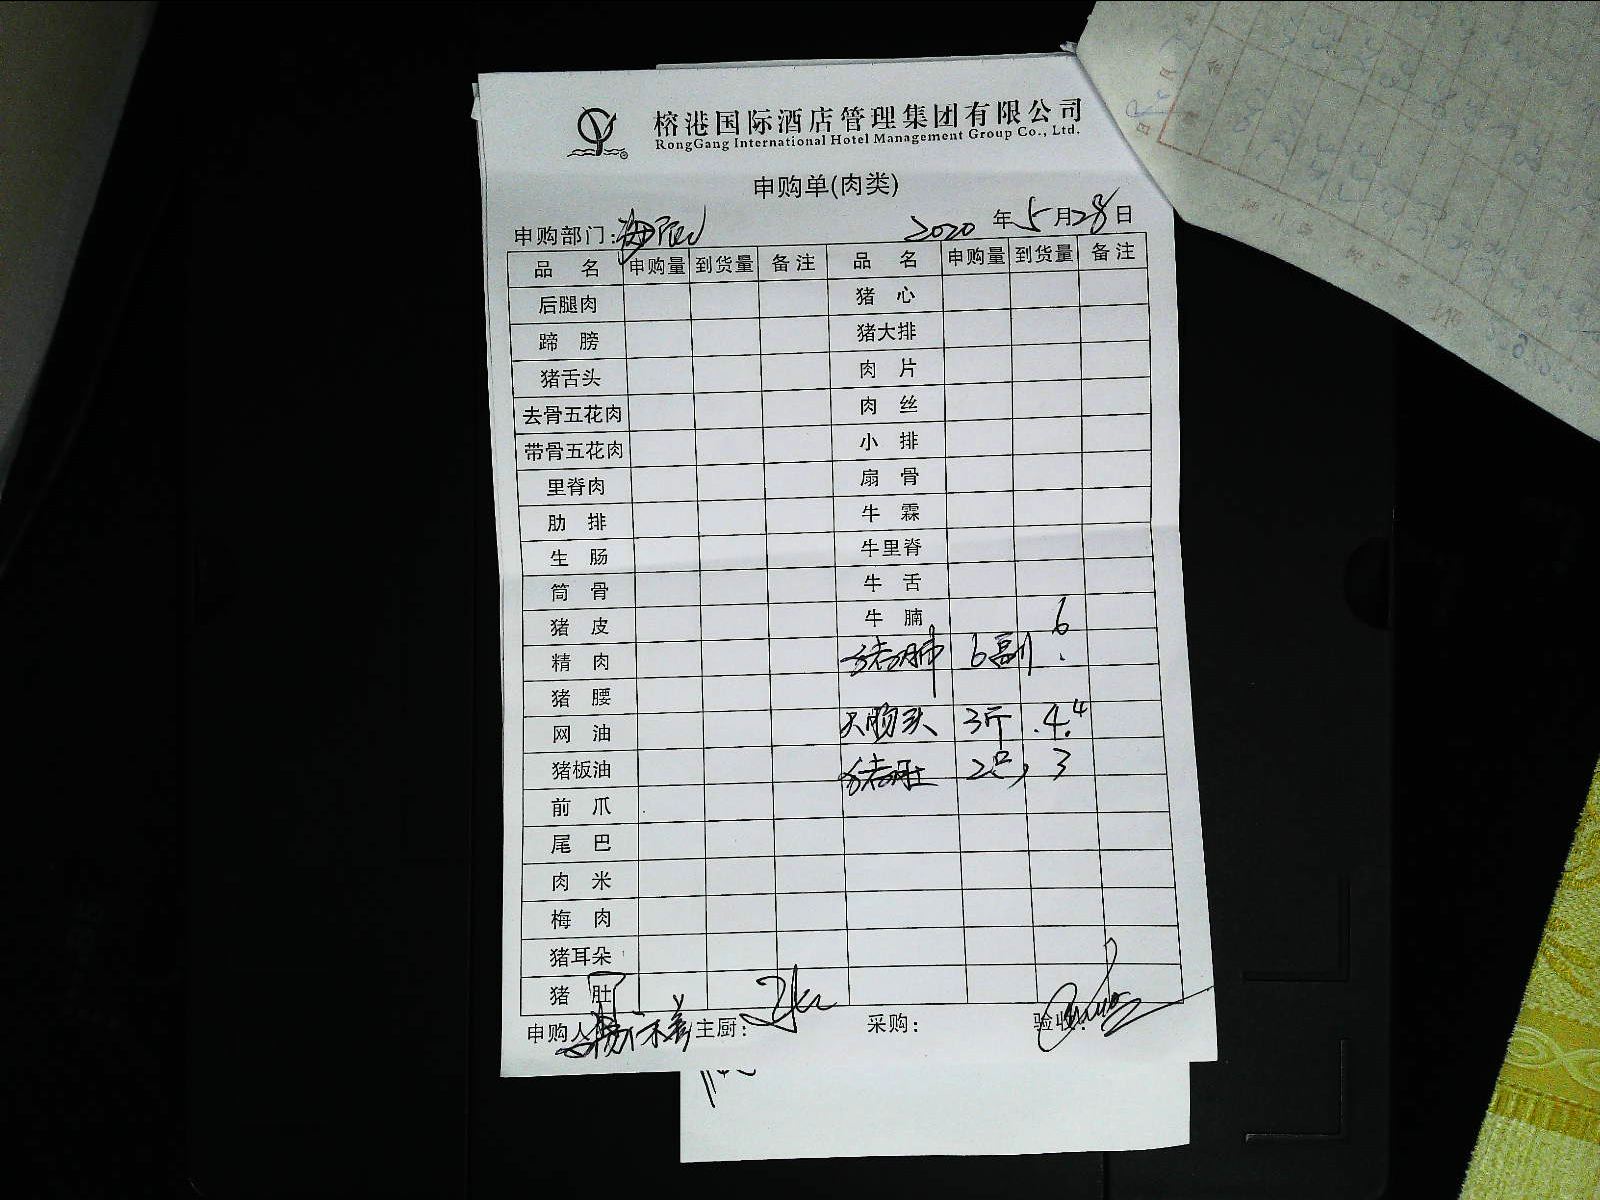 榕港国际酒店管理集团有限公司
RongGang International Hotel Management Group Co., Ltd.
申购单(肉类)
申购部门: 2020 年 5 月 28 日
品 名 申购量 到货量 备注 品 名 申购量 到货量 备注
后腿肉 猪 心
蹄 膀 猪大排
猪舌头 肉 片
去骨五花肉 肉 丝
带骨五花肉 小 排
里脊肉 扇 骨
肋 排 牛 霖
生 肠 牛里脊
筒 骨 牛 舌
猪 皮 牛 腩
精 肉 猪肺 6副 6
猪 腰
网 油 大肠头 3斤 4.4
猪板油 猪肚 2只 3
前 爪
尾 巴
肉 米
梅 肉
猪耳朵
猪 肚
申购人 主厨: 采购: 验收: